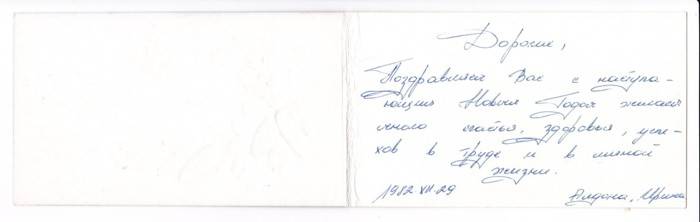 Дорогие,
Поздравляем Вас с наступа-
ющим Новым Годом желаем
много счастья, здоровья, успе-
хов в труде и в личной
жизни.
1982.XII.29 Алдона, Ирина